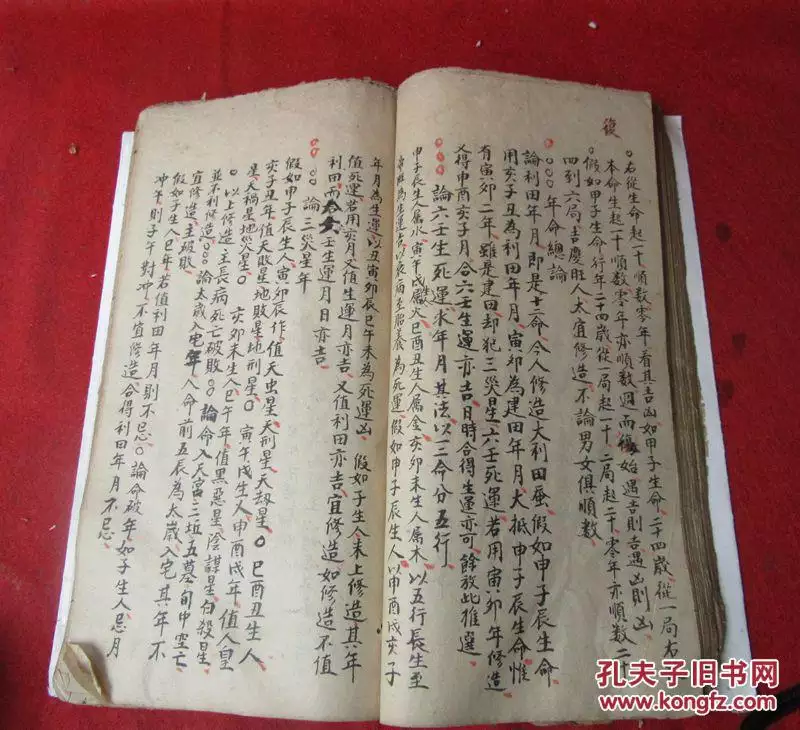 復
右從生命起一十順數零年看其吉凶如甲子生命二十四歲從一局右
本命生起一十順數零年亦順數週而復始遇吉則吉遇凶則凶
假如甲子生命行年二十四歲從一局起一十二局起二十零年亦順數二十
四到六局吉慶旺人大宜修造不論男女俱順數
年命總論
論利田年月即是十二命今人修造大利田蚕假如申子辰生命
用亥子丑為利田年月寅卯為建田年月大抵申子辰生命惟
有寅卯二年雖是建田却犯三災星六壬死運若用寅卯年修造
又得申酉亥子月合六壬生運亦吉日時合得生運亦可餘放此推選
論六壬生死運求年月其法以三命分五行
申子辰生人属水寅午戌生人属火巳酉丑生人属金亥卯未生人属木以五行長生至
帝旺為生運吉以衰病至胎養為死運假如申子辰生人以申酉戌亥子
年月為生運以丑寅卯辰巳午未為死運凶假如子生人未上修造其年
值死運若用亥月又值生運月亦吉又值利田亦吉宜修造如修造不值
利田而六壬生運月日亦吉
論三災星年
假如申子辰生人寅卯辰作值天虫星天刑星天刼星巳酉丑生人
亥子丑年值天敗星地敗星地刑星寅午戌生人申酉戌年值人皇
星天禍星地災星亥卯未生人巳午年值黑惡星陰謀星白殺星
以上修造主長病死亡破敗論命入天宮三坵五墓旬中空亡
並不利修造論太歲入宅年人命前五辰為太歲入宅其年不
宜修造主破敗
假如子生人巳年若值利田年月則不忌論命破年如子生人忌月
冲午則子午對冲不宜修造合得利田年月不忌
孔夫子旧书网
kongfz.com